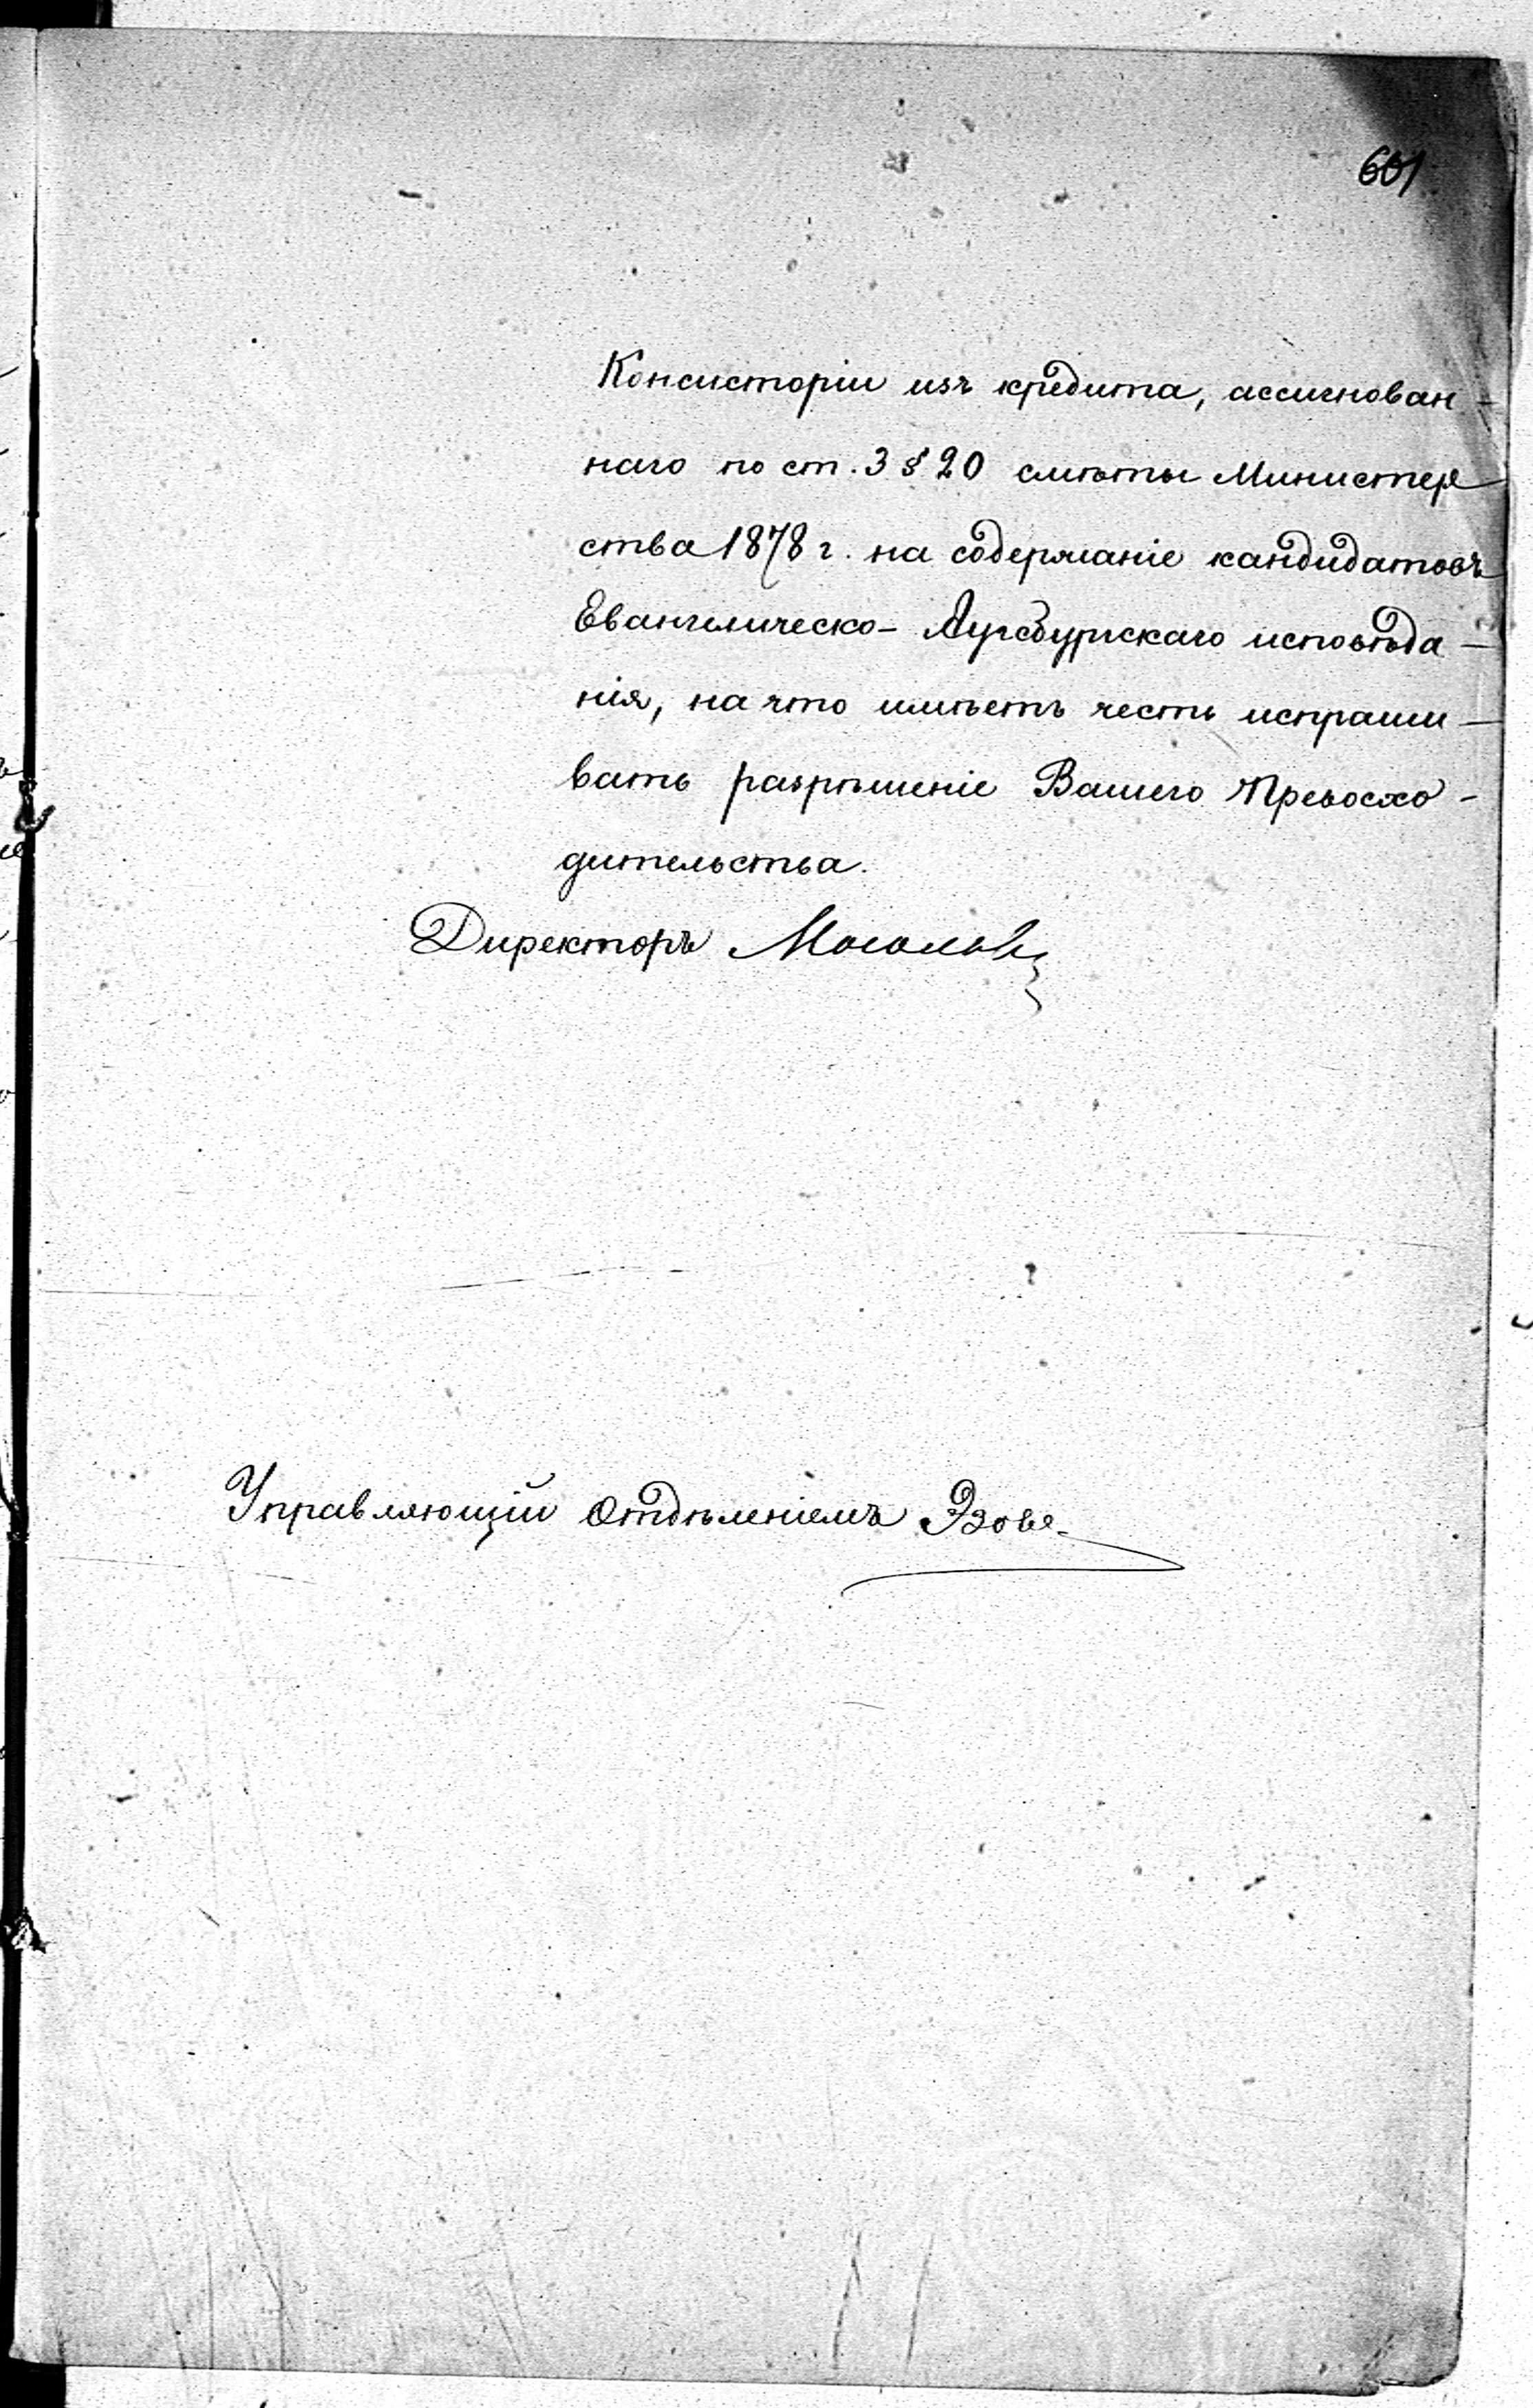 601
Консисторіи изъ кредита, ассигнован-
наго по ст. 3 § 20 смѣты Министер
ства 1878 г. на содержаніе кандидатовъ
Евангелическо-Аугсбургскаго исповѣда-
нія, на что имѣетъ честь испраши-
вать разрѣшеніе Вашего Превосхо-
дительства.
Директоръ Мосоловъ
Управляющій Отдѣленіемъ Эзовъ